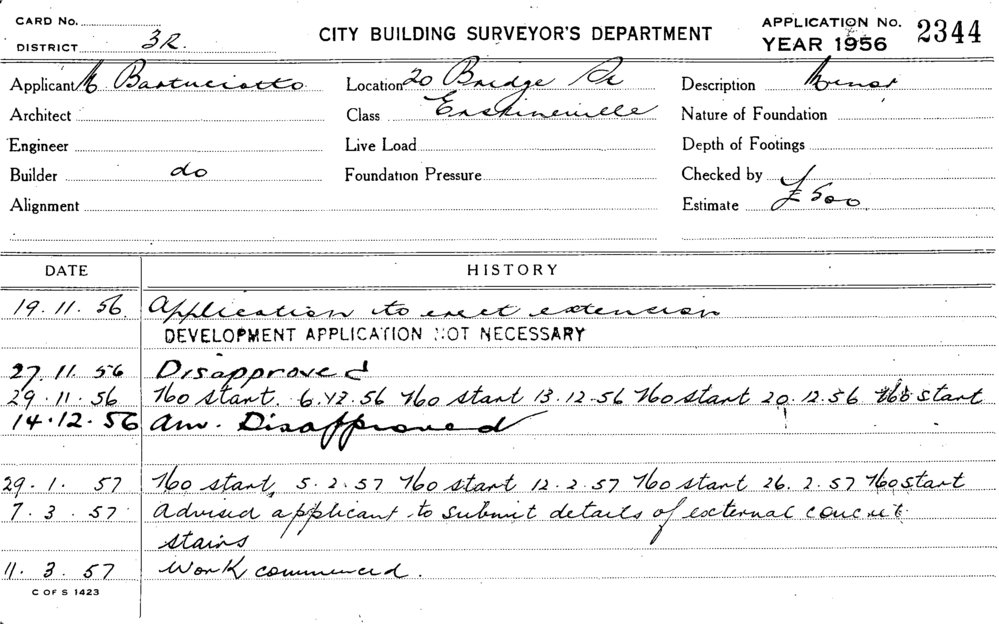 CARD No.
DISTRICT 3R.
CITY BUILDING SURVEYOR'S DEPARTMENT
APPLICATION No. 2344
YEAR 1956
Applicant M Bartuciotto Location 20 Bridge St Description Minor
Architect Class Erskineville Nature of Foundation
Engineer Live Load Depth of Footings
Builder do Foundation Pressure Checked by
Alignment Estimate £500
DATE HISTORY
19.11.56 Application to erect extension
DEVELOPMENT APPLICATION NOT NECESSARY
27.11.56 Disapproved
29.11.56 No start. 6.12.56 No start 13.12.56 No start 20.12.56 No start
14.12.56 am. Disapproved
29.1.57 No start, 5.2.57 No start 12.2.57 No start 26.2.57 No start
7.3.57 Advised applicant to submit details of external concret
stairs
11.3.57 Work commenced.
C OF S 1423